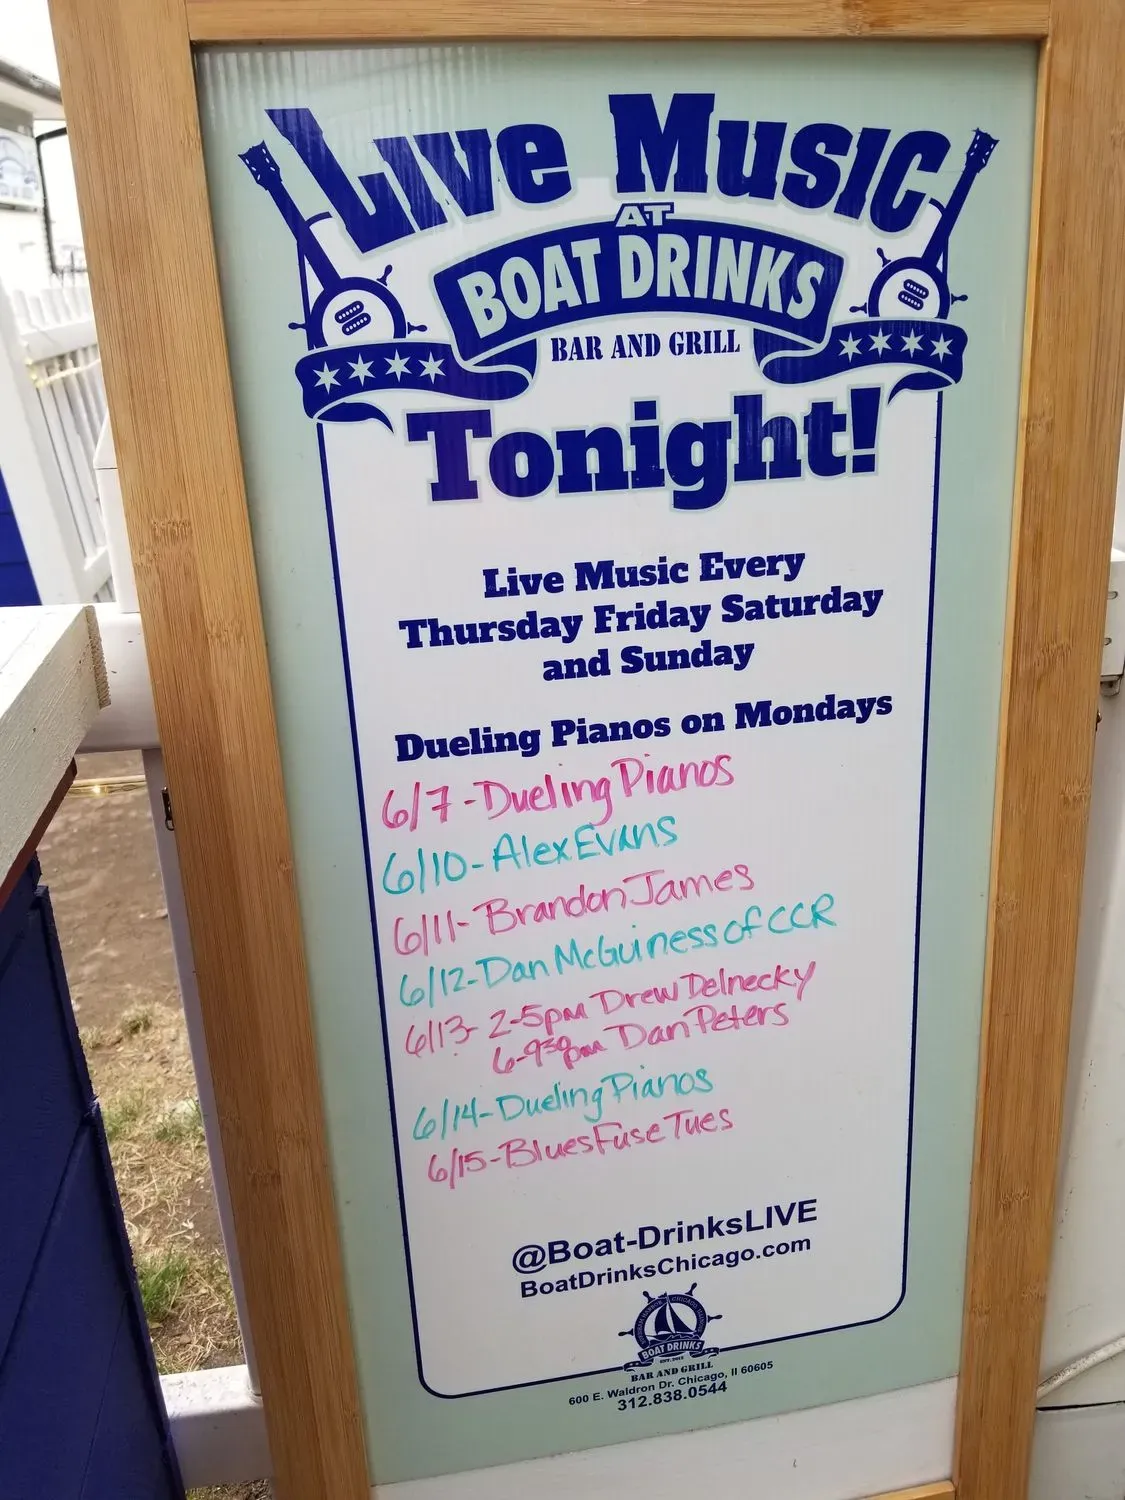 Live Music
AT
BOAT DRINKS
BAR AND GRILL
Tonight!
Live Music Every
Thursday Friday Saturday
and Sunday
Dueling Pianos on Mondays
6/7-Dueling Pianos
6/10-Alex Evans
6/11-Brandon James
6/12-Dan McGuiness of CCR
6/13- 2-5pm Drew Delnecky
6-9:30pm Dan Peters
6/14-Dueling Pianos
6/15-Blues Fuse Tues
@Boat-DrinksLIVE
BoatDrinksChicago.com
BOAT DRINKS
BAR AND GRILL
600 E. Waldron Dr. Chicago, Il 60605
312.838.0544